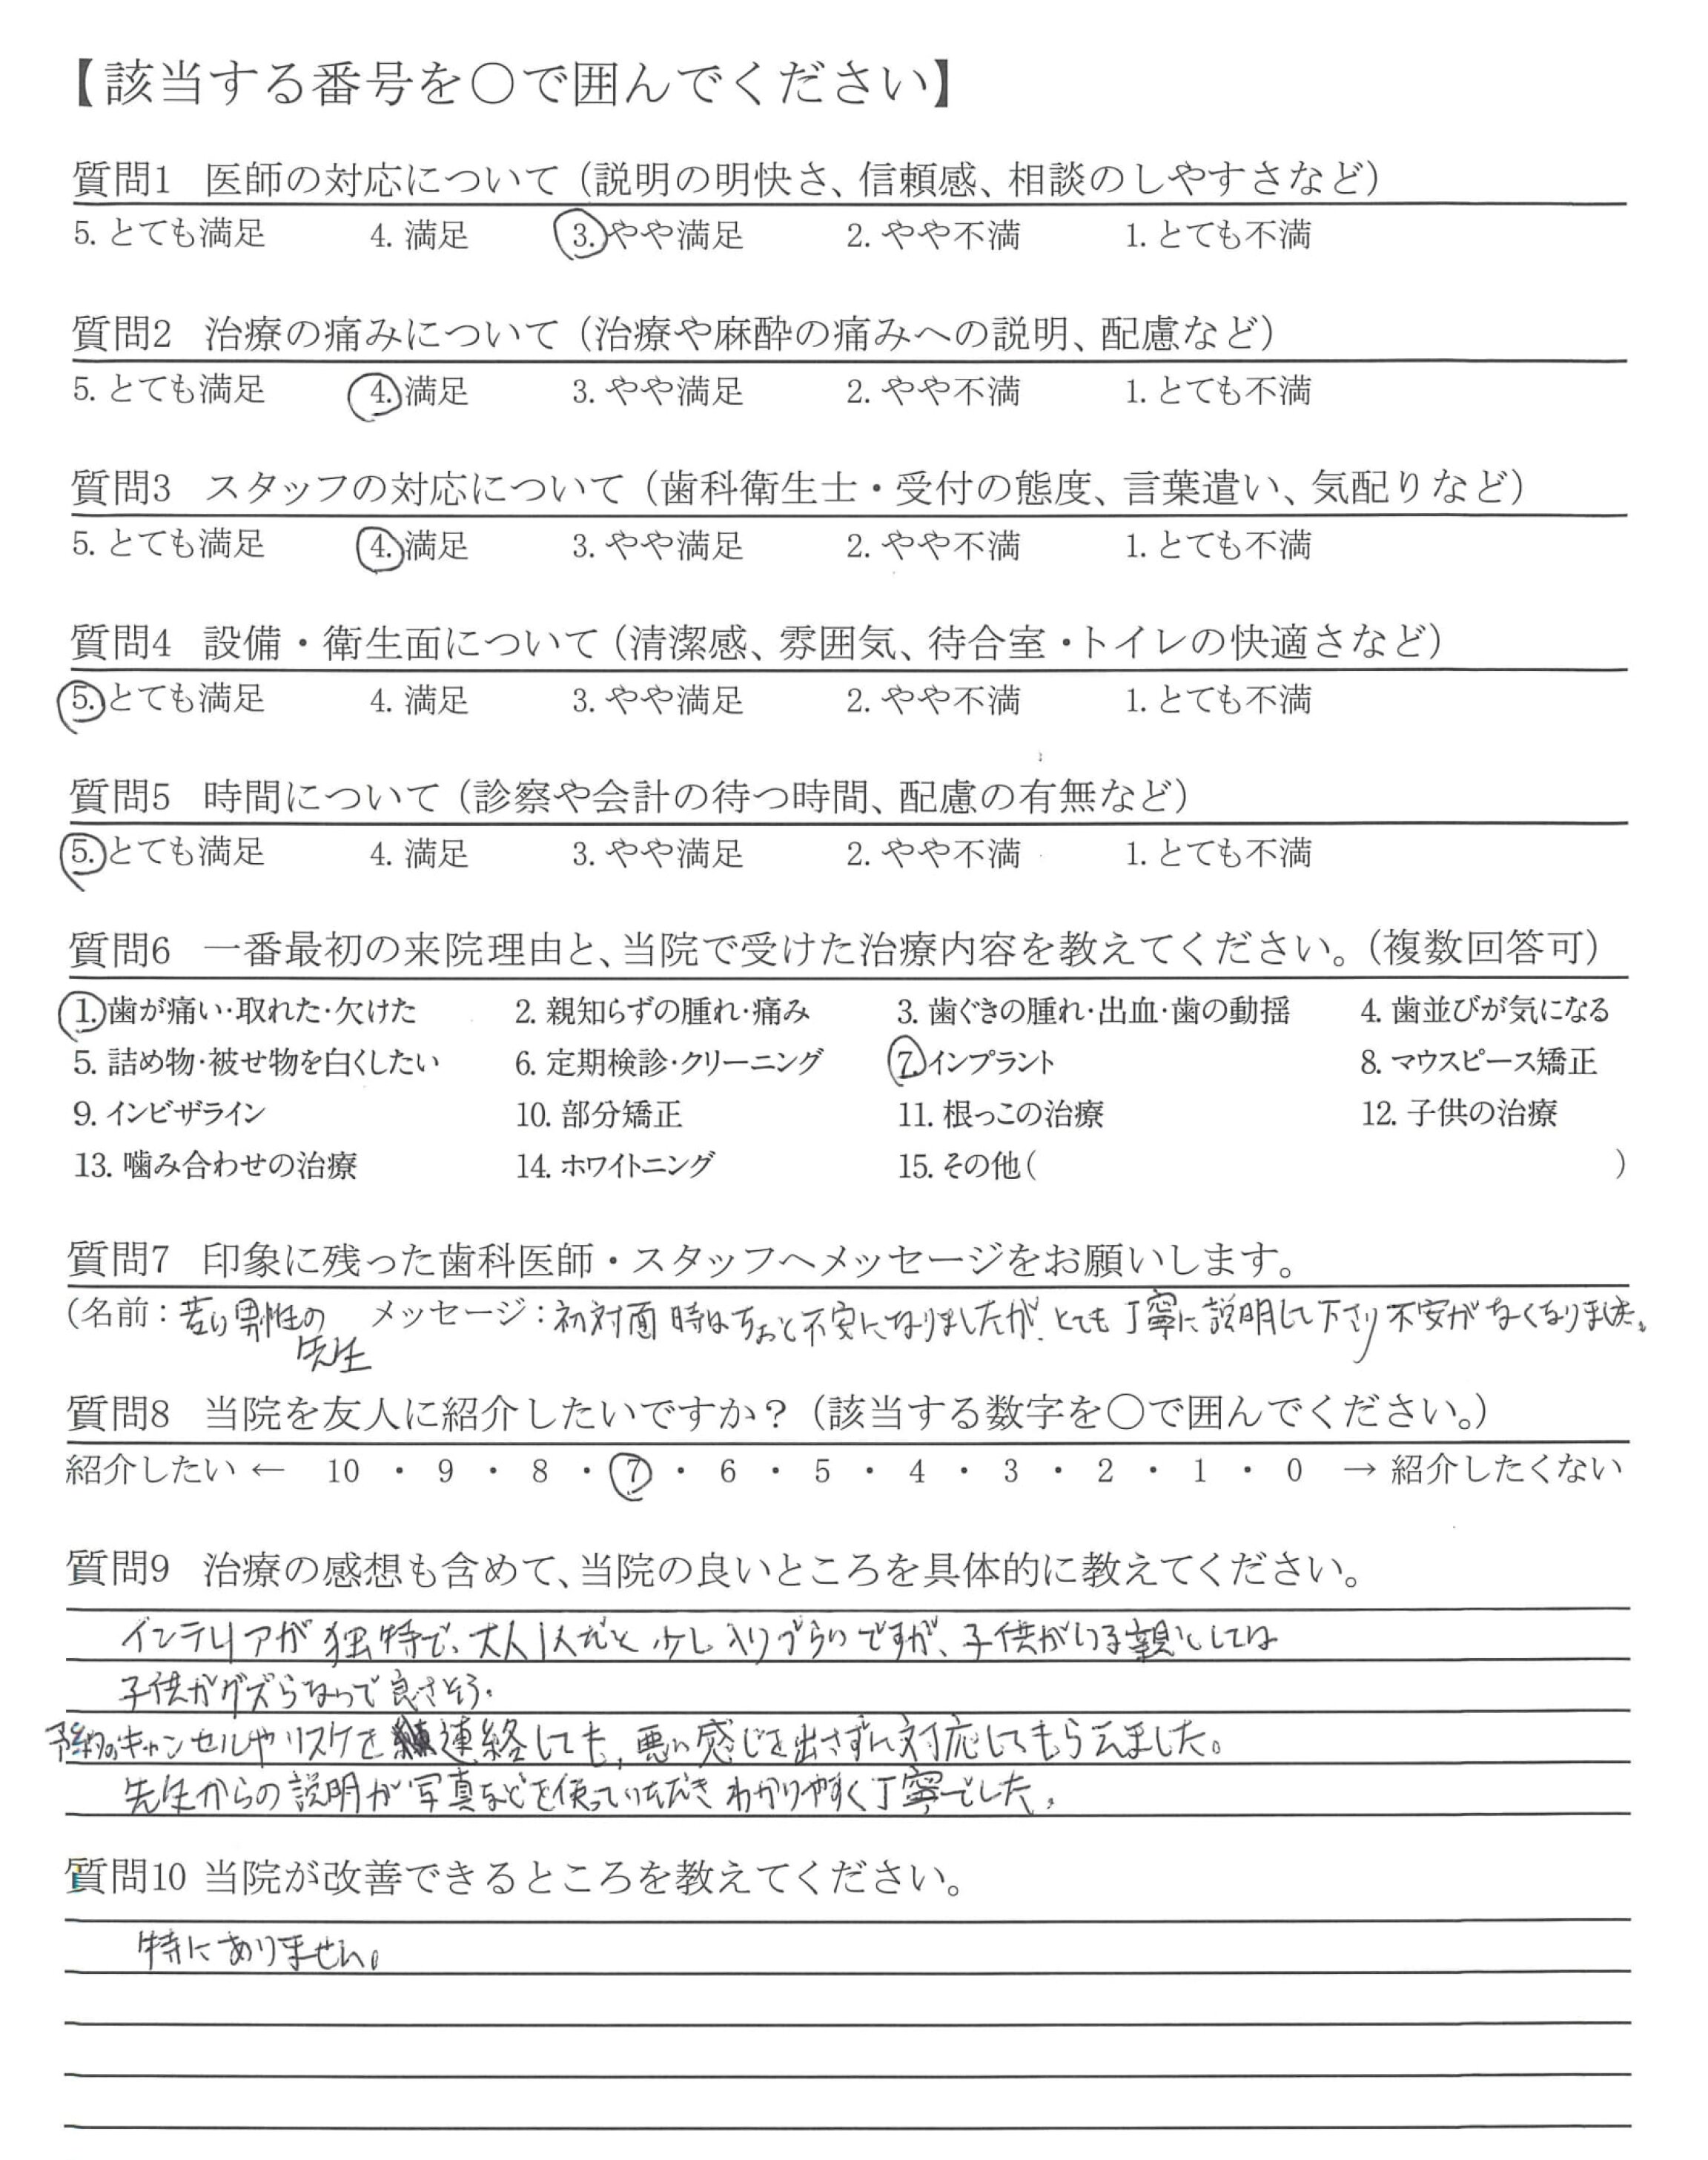 【該当する番号を〇で囲んでください】
質問1 医師の対応について（説明の明快さ、信頼感、相談のしやすさなど）
5. とても満足 4. 満足 3. やや満足 2. やや不満 1. とても不満
質問2 治療の痛みについて（治療や麻酔の痛みへの説明、配慮など）
5. とても満足 4. 満足 3. やや満足 2. やや不満 1. とても不満
質問3 スタッフの対応について（歯科衛生士・受付の態度、言葉遣い、気配りなど）
5. とても満足 4. 満足 3. やや満足 2. やや不満 1. とても不満
質問4 設備・衛生面について（清潔感、雰囲気、待合室・トイレの快適さなど）
5. とても満足 4. 満足 3. やや満足 2. やや不満 1. とても不満
質問5 時間について（診察や会計の待つ時間、配慮の有無など）
5. とても満足 4. 満足 3. やや満足 2. やや不満 1. とても不満
質問6 一番最初の来院理由と、当院で受けた治療内容を教えてください。（複数回答可）
1. 歯が痛い・取れた・欠けた 2. 親知らずの腫れ・痛み 3. 歯ぐきの腫れ・出血・歯の動揺 4. 歯並びが気になる
5. 詰め物・被せ物を白くしたい 6. 定期検診・クリーニング 7. インプラント 8. マウスピース矯正
9. インビザライン 10. 部分矯正 11. 根っこの治療 12. 子供の治療
13. 噛み合わせの治療 14. ホワイトニング 15. その他（ ）
質問7 印象に残った歯科医師・スタッフへメッセージをお願いします。
（名前：若い男性の メッセージ：初対面時はちょと不安になりましたが、とても丁寧に説明して下さり不安がなくなりました。
先生
質問8 当院を友人に紹介したいですか？（該当する数字を〇で囲んでください。）
紹介したい ← 10 ・ 9 ・ 8 ・ 7 ・ 6 ・ 5 ・ 4 ・ 3 ・ 2 ・ 1 ・ 0 → 紹介したくない
質問9 治療の感想も含めて、当院の良いところを具体的に教えてください。
インテリアが独特で、大人1人だと少し入りづらいですが、子供がいる親としては
子供がグズらなって良さそう。
予約のキャンセルやリスケを連絡しても、悪い感じを出さずに対応してもらえました。
先生からの説明が写真などを使っていただきわかりやすく丁寧でした。
質問10 当院が改善できるところを教えてください。
特にありません。